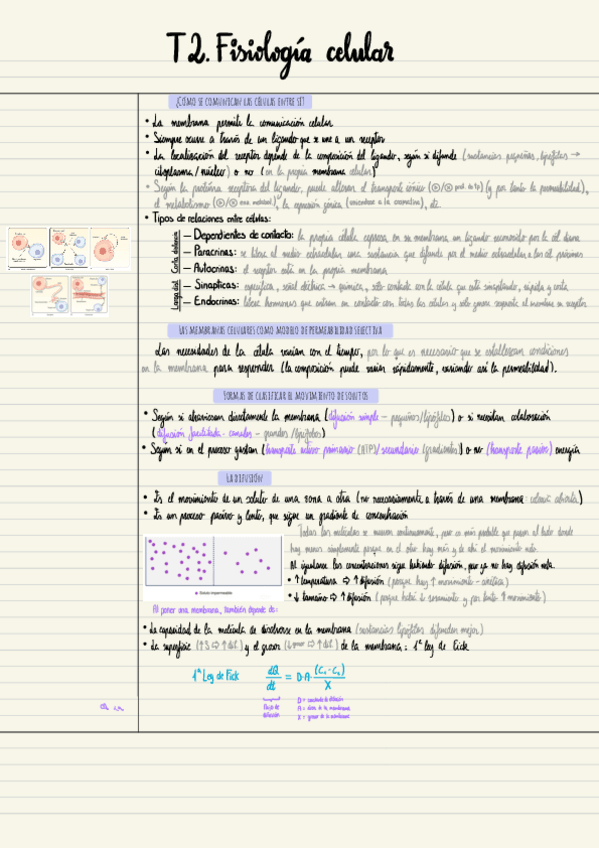 T2. Fisiología celular
¿CÓMO SE COMUNICAN LAS CÉLULAS ENTRE SÍ?
• La membrana permite la comunicación celular
• Siempre ocurre a través de un ligando que se une a un receptor
• La localización del receptor depende de la composición del ligando, según si difunde (sustancias pequeñas, lipófilas →
citoplasma/núcleo) o no (en la propia membrana celular)
• Según la proteína receptora del ligando, puede alterar el transporte iónico (y por tanto la permeabilidad),
el metabolismo, la expresión génica, etc.
• Tipos de relaciones entre células:
Corta distancia
– Dependientes de contacto: la propia célula expresa en su membrana un ligando reconocido por la cél. diana
– Paracrinas: se libera al medio extracelular una sustancia que difunde por el medio extracelular a las cél. próximas
– Autocrinas: el receptor está en la propia membrana
Larga dist.
– Sinápticas: específica, señal eléctrica → química, sólo contacta con la célula que está sinaptando, rápida y corta
– Endocrinas: libera hormonas que entran en contacto con todas las células y sólo genera respuesta si
LAS MEMBRANAS CELULARES COMO MODELO DE PERMEABILIDAD SELECTIVA
Las necesidades de la célula varían con el tiempo, por lo que es necesario que se establezcan condiciones
en la membrana para responder (la composición puede variar rápidamente, variando así la permeabilidad).
FORMAS DE CLASIFICAR EL MOVIMIENTO DE SOLUTOS
• Según si atraviesan directamente la membrana (difusión simple – pequeños/lipófilos) o si necesitan colaboración
(difusión facilitada: canales – grandes/lipófobos)
• Según si en el proceso gastan (transporte activo primario (ATP)/secundario (gradientes)) o no (transporte pasivo) energía
LA DIFUSIÓN
• Es el movimiento de un soluto de una zona a otra (no necesariamente a través de una membrana: colonia abierta)
• Es un proceso pasivo y lento, que sigue un gradiente de concentración
Todas las moléculas se mueven continuamente, pero es más probable que pasen al lado donde
hay menos simplemente porque en el otro hay más y de ahí el movimiento neto.
Al igualarse las concentraciones sigue habiendo difusión, pero ya no hay difusión neta.
• ↑ temperatura ⇨ ↑ difusión (porque hay ↑ movimiento – cinética)
• ↓ tamaño ⇨ ↑ difusión (porque habrá ↓ rozamiento y por tanto ↑ movimiento)
Al poner una membrana, también depende de:
• La capacidad de la molécula de disolverse en la membrana (sustancias lipófilas difunden mejor)
• La superficie (↑S ⇨ ↑dif.) y el grosor (↓grosor ⇨ ↑dif.) de la membrana: 1ª ley de Fick
1ª Ley de Fick dQ/dt = D·A·(C₁-C₂)/X
Flujo de difusión
D = constante de difusión
A = área de la membrana
X = grosor de la membrana